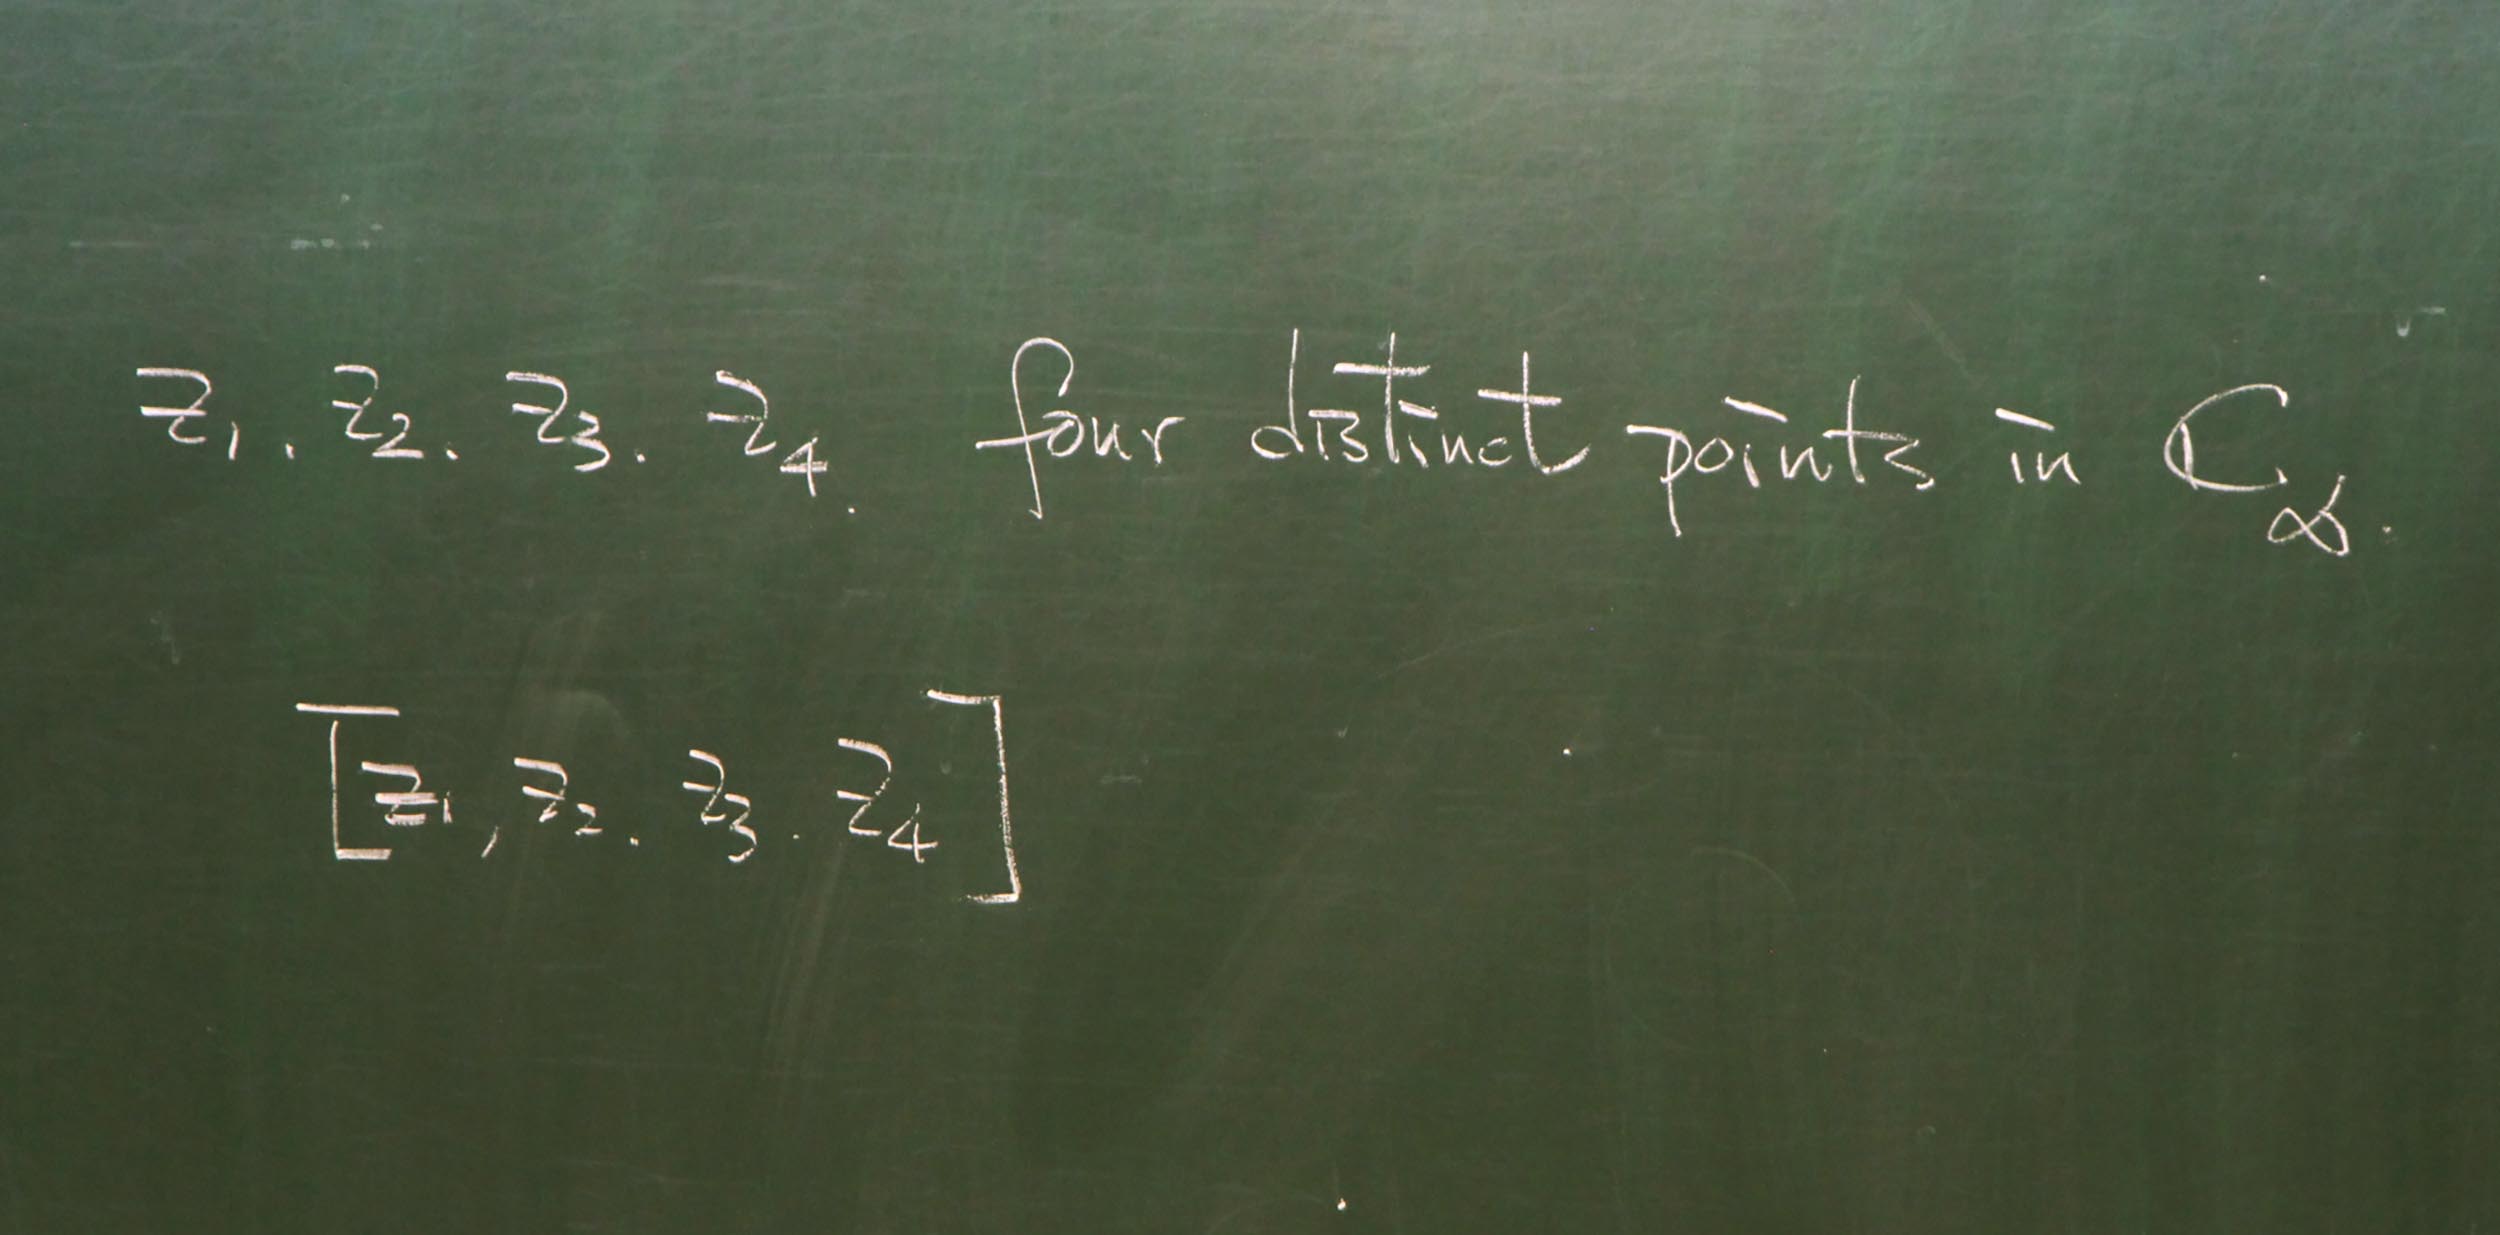 z₁, z₂. z₃. z₄. four distinct points in ℂ∞.
[z₁, z₂. z₃. z₄]